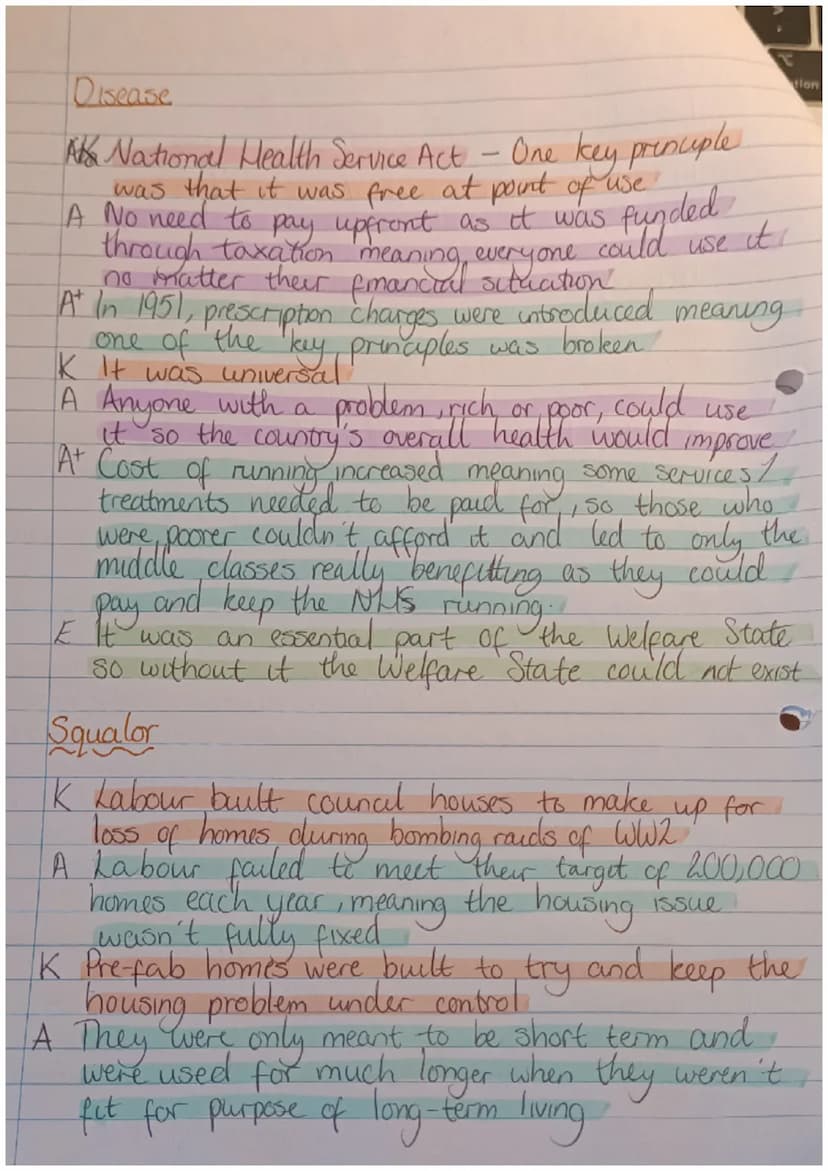 Disease
K National Health Service Act – One key principle
was that it was free at point of use
A No need to pay upfront as it was funded
through taxation meaning everyone could use it
no matter their financial situation
A+ In 1951, prescription charges were introduced meaning
one of the key principles was broken
K It was universal
A Anyone with a problem, rich or poor, could use
it so the country's overall health would improve
A+ Cost of running increased meaning some services/
treatments needed to be paid for, so those who
were poorer couldn't afford it and led to only the
middle classes really benefitting as they could
pay and keep the NHS running.
E It was an essential part of the Welfare State
so without it the Welfare State could not exist
Squalor
K Labour built council houses to make up for
loss of homes during bombing raids of WW2
A Labour failed to meet their target of 200,000
homes each year, meaning the housing issue
wasn't fully fixed
K Pre-fab homes were built to try and keep the
housing problem under control
A They were only meant to be short term and
were used for much longer when they weren't
fit for purpose of long-term living